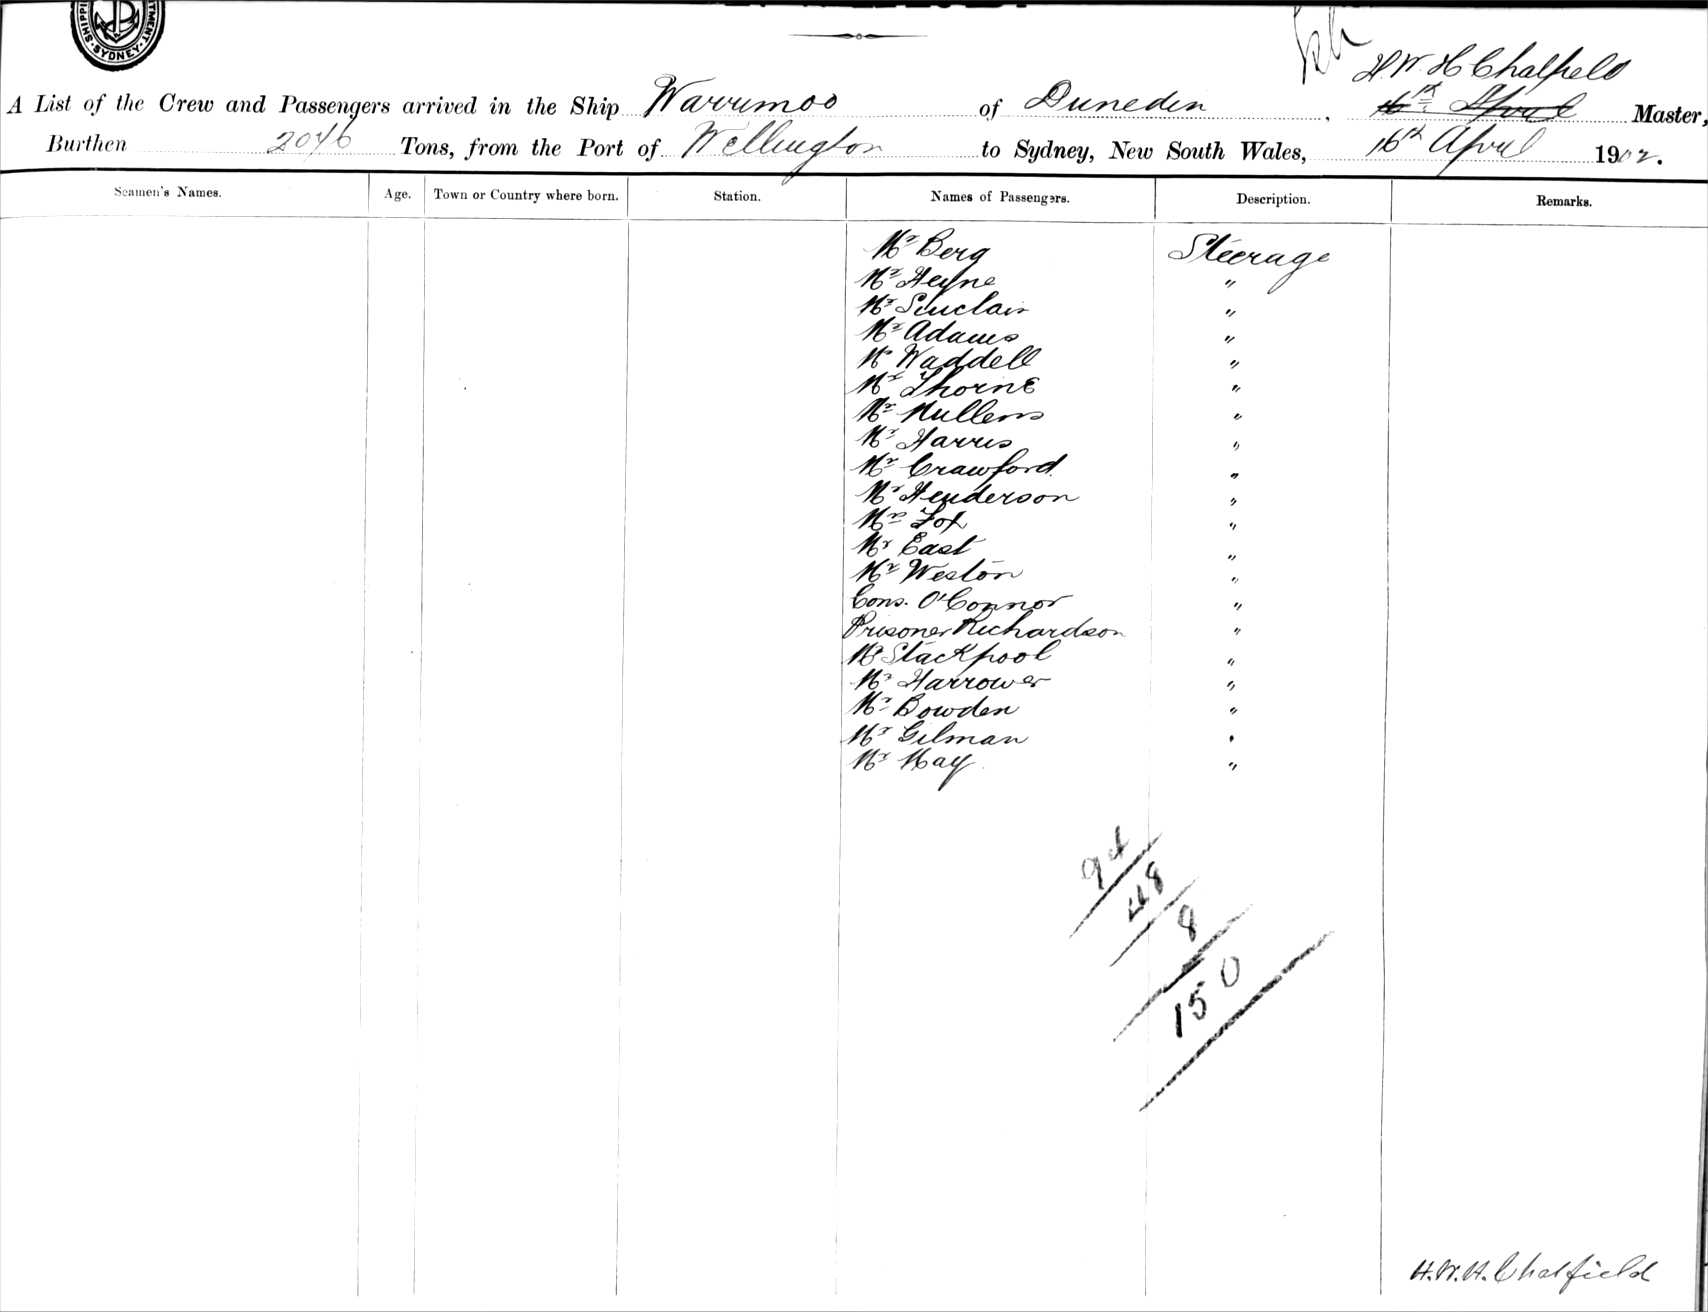 SHIPPI
TMENT
SYDNEY
H W. H Chatfield
A List of the Crew and Passengers arrived in the Ship Warrimoo of Dunedin, 16th April Master,
Burthen 2046 Tons, from the Port of Wellington to Sydney, New South Wales, 16th April 1902.
Seamen's Names. Age. Town or Country where born. Station. Names of Passengers. Description. Remarks.
Mr Berg Steerage
Mr Heyne "
Mr Sinclair "
Mr Adams "
Mr Waddell "
Mr Thorne "
Mr Mullens "
Mr Harris "
Mr Crawford "
Mr Henderson "
Mrs Fox "
Mr East "
Mr Weston "
Cons. O'Connor "
Prisoner Richardson "
Mr Stackpool "
Mr Harrower "
Mr Bowden "
Mr Gilman "
Mr May "
94
48
8
150
H. W. H. Chatfield